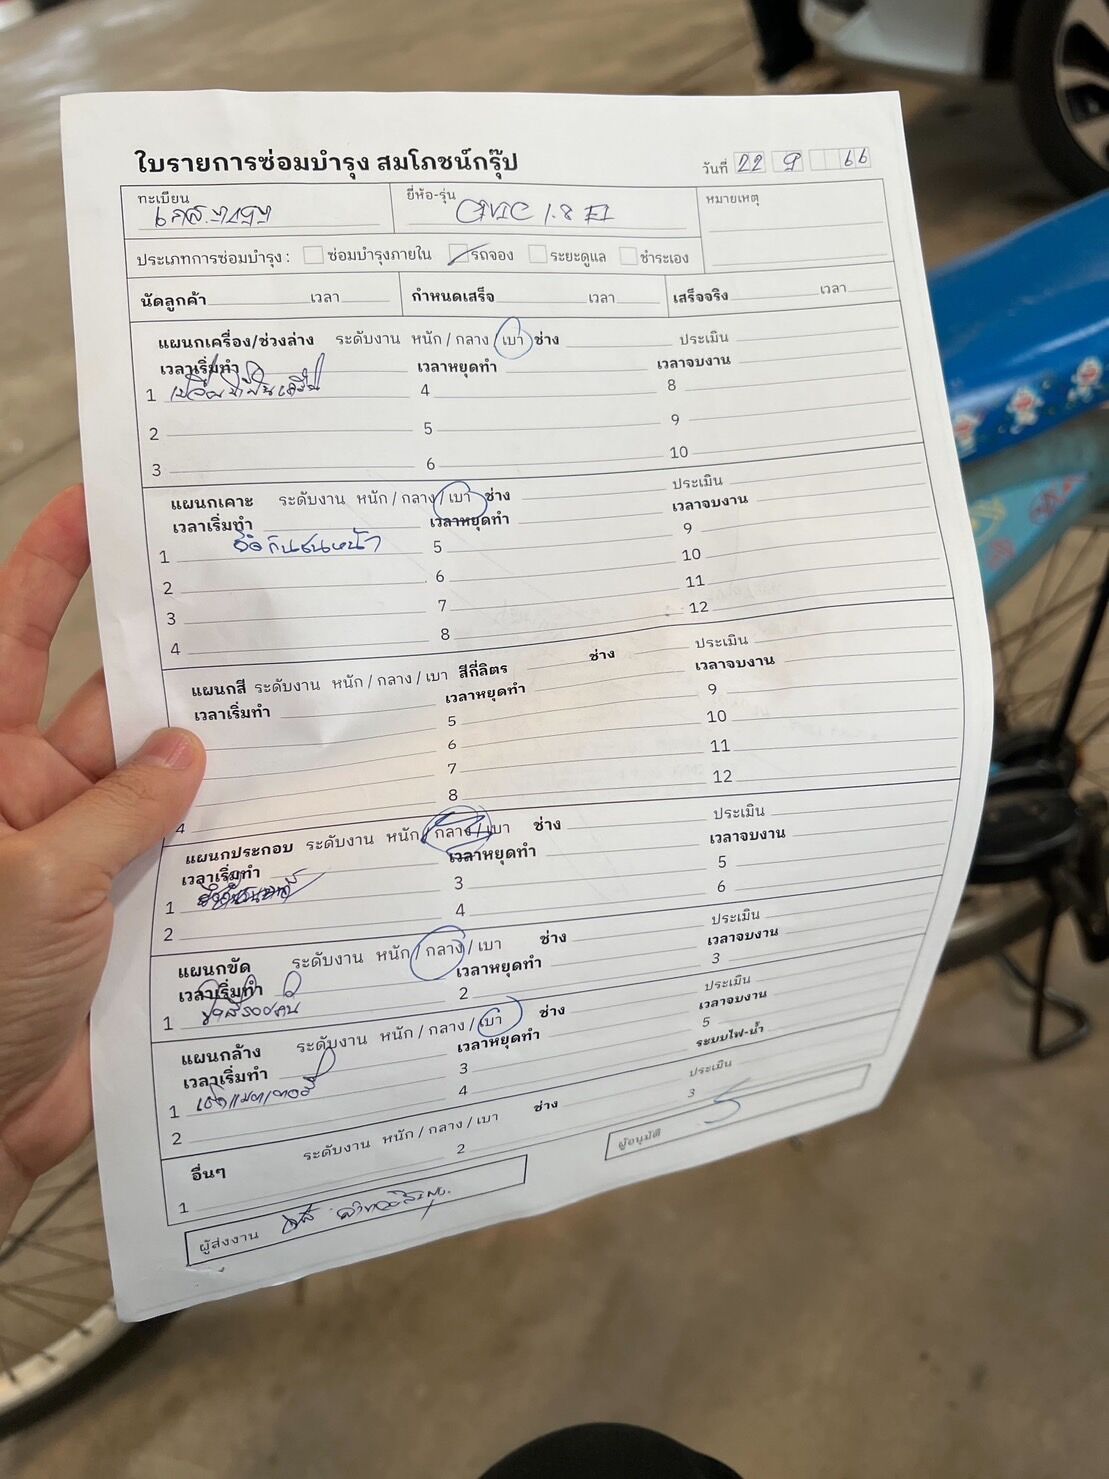 ใบรายการซ่อมบำรุง สมโภชน์กรุ๊ป
วันที่ 22 9 66
ทะเบียน
ยี่ห้อ-รุ่น CIVIC 1.8 EL
หมายเหตุ
ประเภทการซ่อมบำรุง : ซ่อมบำรุงภายใน รถจอง ระยะดูแล ชำระเอง
นัดลูกค้า เวลา กำหนดเสร็จ เวลา เสร็จจริง เวลา
แผนกเครื่อง/ช่วงล่าง ระดับงาน หนัก / กลาง / เบา ช่าง ประเมิน
เวลาเริ่มทำ เวลาหยุดทำ เวลาจบงาน
1 4 8
2 5 9
3 6 10
แผนกเคาะ ระดับงาน หนัก / กลาง / เบา ช่าง ประเมิน
เวลาเริ่มทำ เวลาหยุดทำ เวลาจบงาน
1 กันชนหน้า 5 9
2 6 10
3 7 11
4 8 12
แผนกสี ระดับงาน หนัก / กลาง / เบา สีกี่ลิตร ช่าง ประเมิน
เวลาเริ่มทำ เวลาหยุดทำ เวลาจบงาน
5 9
6 10
7 11
4 8 12
แผนกประกอบ ระดับงาน หนัก / กลาง / เบา ช่าง ประเมิน
เวลาเริ่มทำ เวลาหยุดทำ เวลาจบงาน
1 3 5
2 4 6
แผนกขัด ระดับงาน หนัก / กลาง / เบา ช่าง ประเมิน
เวลาเริ่มทำ เวลาหยุดทำ เวลาจบงาน
1 2 3
แผนกล้าง ระดับงาน หนัก / กลาง / เบา ช่าง ประเมิน
เวลาเริ่มทำ เวลาหยุดทำ เวลาจบงาน
1 3 5
2 4 ระบบไฟ-น้ำ
อื่นๆ ระดับงาน หนัก / กลาง / เบา ช่าง ประเมิน
1 2 3
ผู้ส่งงาน ผู้อนุมัติ